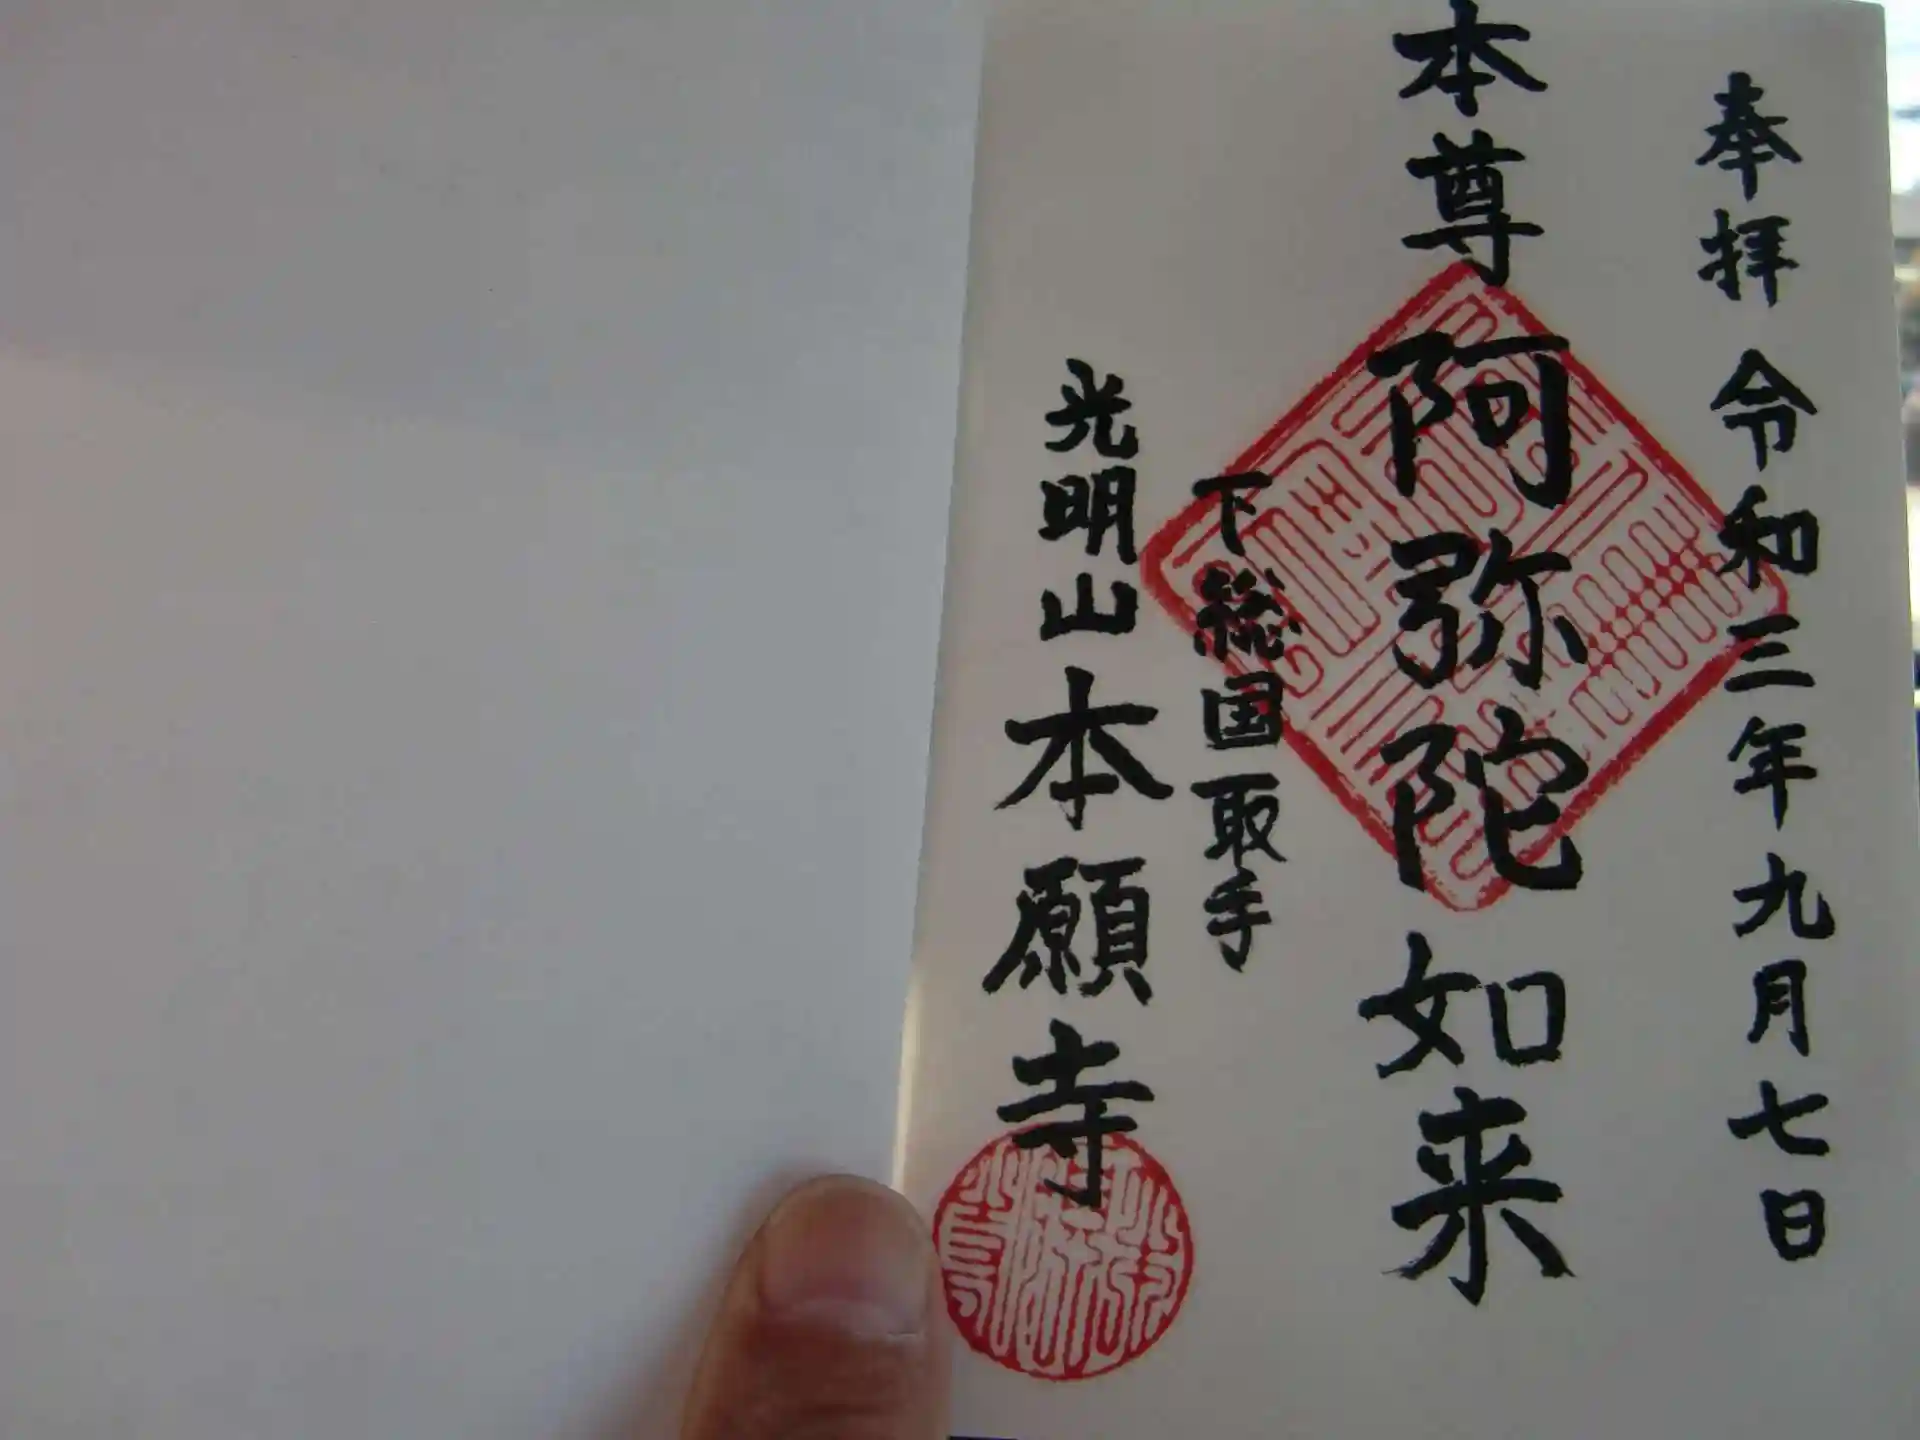 奉拝 令和三年九月七日
本尊 阿弥陀如来
下総国取手
光明山 本願寺